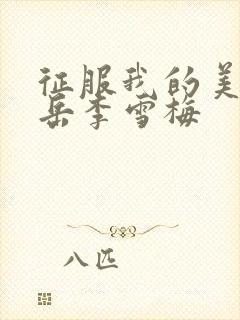 征服我的美
岳李雪梅
八匹